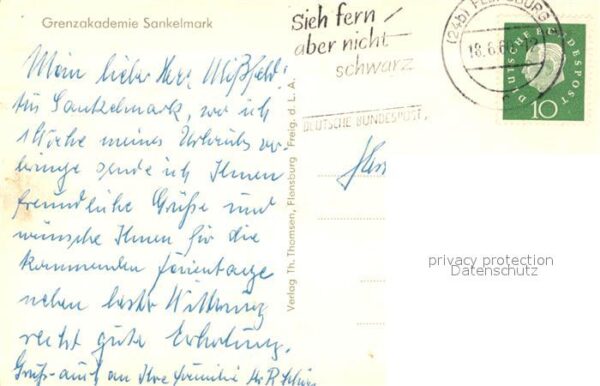 Grenzakademie Sankelmark
Sieh fern
aber nicht
schwarz
DEUTSCHE BUNDESPOST
(24b) FLENSBURG
18.6.60
DEUTSCHE BUNDESPOST
10
Mein lieber Herr
Aus Sankelmark, wo ich
1 Woche meines Urlaubs ver-
bringe sende ich Ihnen
freundliche Grüße und
wünsche Ihnen für die
kommenden Ferientage
neben bester Witterung
recht gute Erholung.
Gruß auch an Ihre Familie Ihr R.
Verlag Th. Thomsen, Flensburg Freig. d. L. A.
privacy protection
Datenschutz